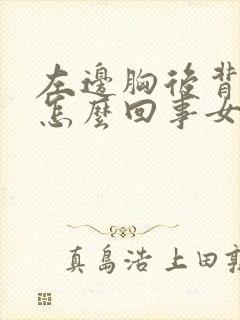 左邊胸後背
怎麼回事女
真島浩 上田敦